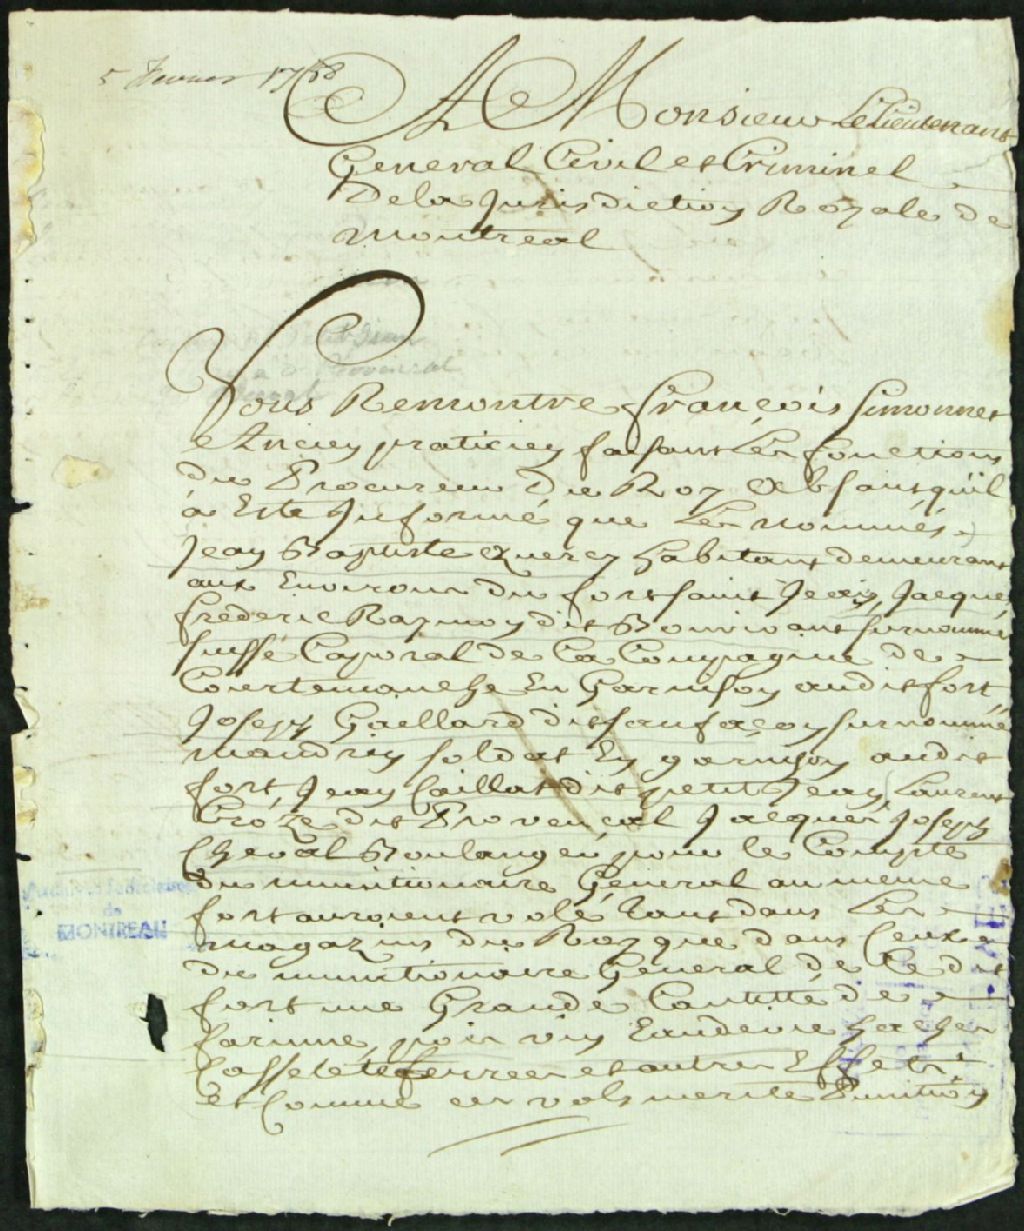 5 fevrier 1758
A Monsieur Le Lieutenant
General Civil et Criminel
De la Jurisdiction Royale de
Montreal
Vous Remontre françois simonnet
Ancien praticien faisant Les fonctions
du Procureur Du Roy Absant quil
a Esté Informé que Les nommés
Jean Baptiste Quercy habitant demeurant
aux Environs du fort saint Jean, Jacque
frederic Raymon dit Bonvivant surnommé
suisse Caporal de La Compagnie de
Courtemanche En Garnison audit fort
Joseph Gaillard dit sanfaçon surnommé
mandrin soldat En garnison audit
fort Jean Caillat dit petit Jean, Laurent
Croze dit Provençal Jacques Joseph
Cheval Boulanger pour le Compte
du munitionaire General au meme
fort auroient volé tant dans Les
magazins du Roy que dans Ceux
du munitionaire General de Ce dit
fort une Grande Cantitté de
farinne, pois vin Eaudevie haches
Cassetete ferrees et autres Effets
et Comme ces vols merite Punition
Archives Judiciaires
de
MONTREAL